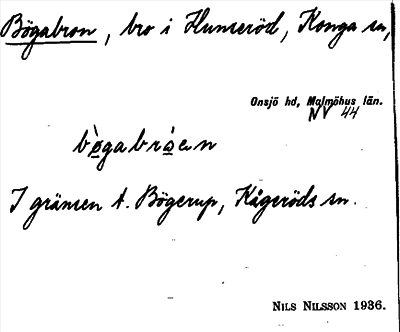 Bögabron, bro i Hunseröd, Konga sn,
Onsjö hd, Malmöhus län.
NV 44
bø̀gabrá̱en
I gränsen t. Bögerup, Kågeröds sn.
NILS NILSSON 1936.